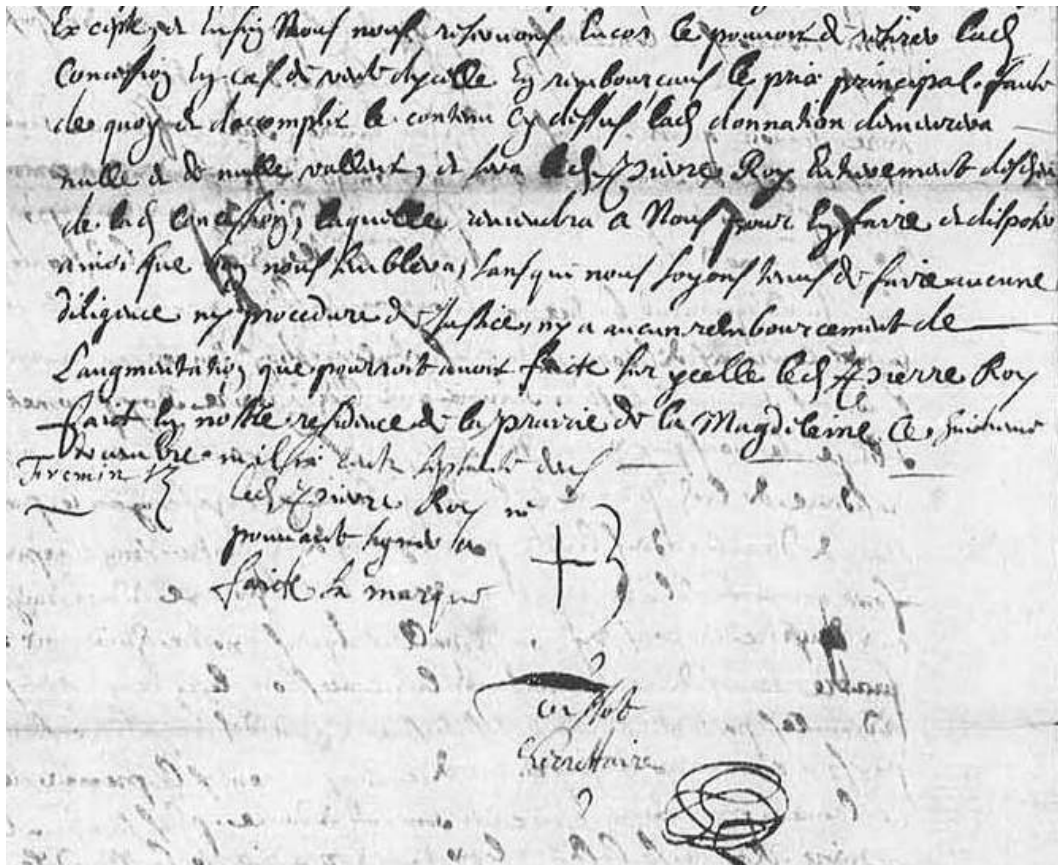 Excepté, et Enfin Nous nous reservons Encor le pouvoir de retirer lad
Concession En cas de vente d'ycelle En rembourçant le prix principal. faute
de quoy et d'accomplir le contenu Cy dessus lad donnation demeurera
nulle et de nulle valleur, et sera led Pierre Roy Entierement descheu
de lad Concession, laquelle reviendra a Nous pour En faire et disposer
ainsi que bon nous semblera, sans que nous soyons tenus de faire aucune
diligence ny procedure de Justice, ny a aucun rembourcement de
L'augmentation que pourroit avoir faicte sur ycelle led Pierre Roy
faict En nostre residence de la prairie de la Magdeleine Ce
mil six cents septante
Fremin
led Pierre Roy ne
pouvant signer a
faicte sa marque
+
Secrettaire